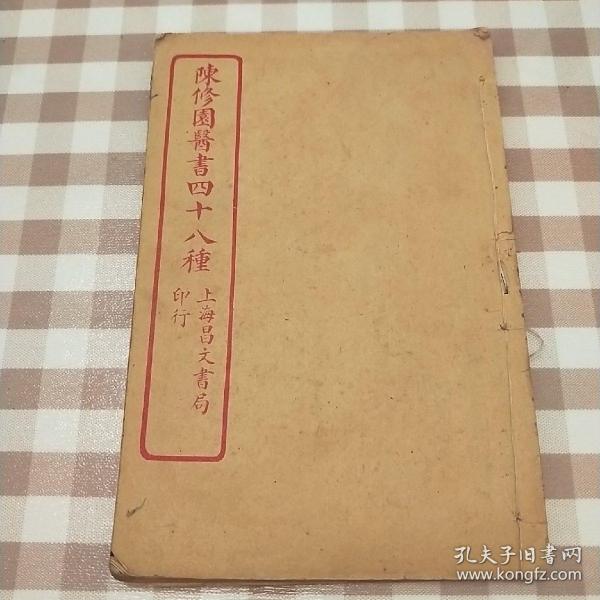 陳修園醫書四十八種
上海昌文書局
印行
孔夫子旧书网
www.kongfz.com